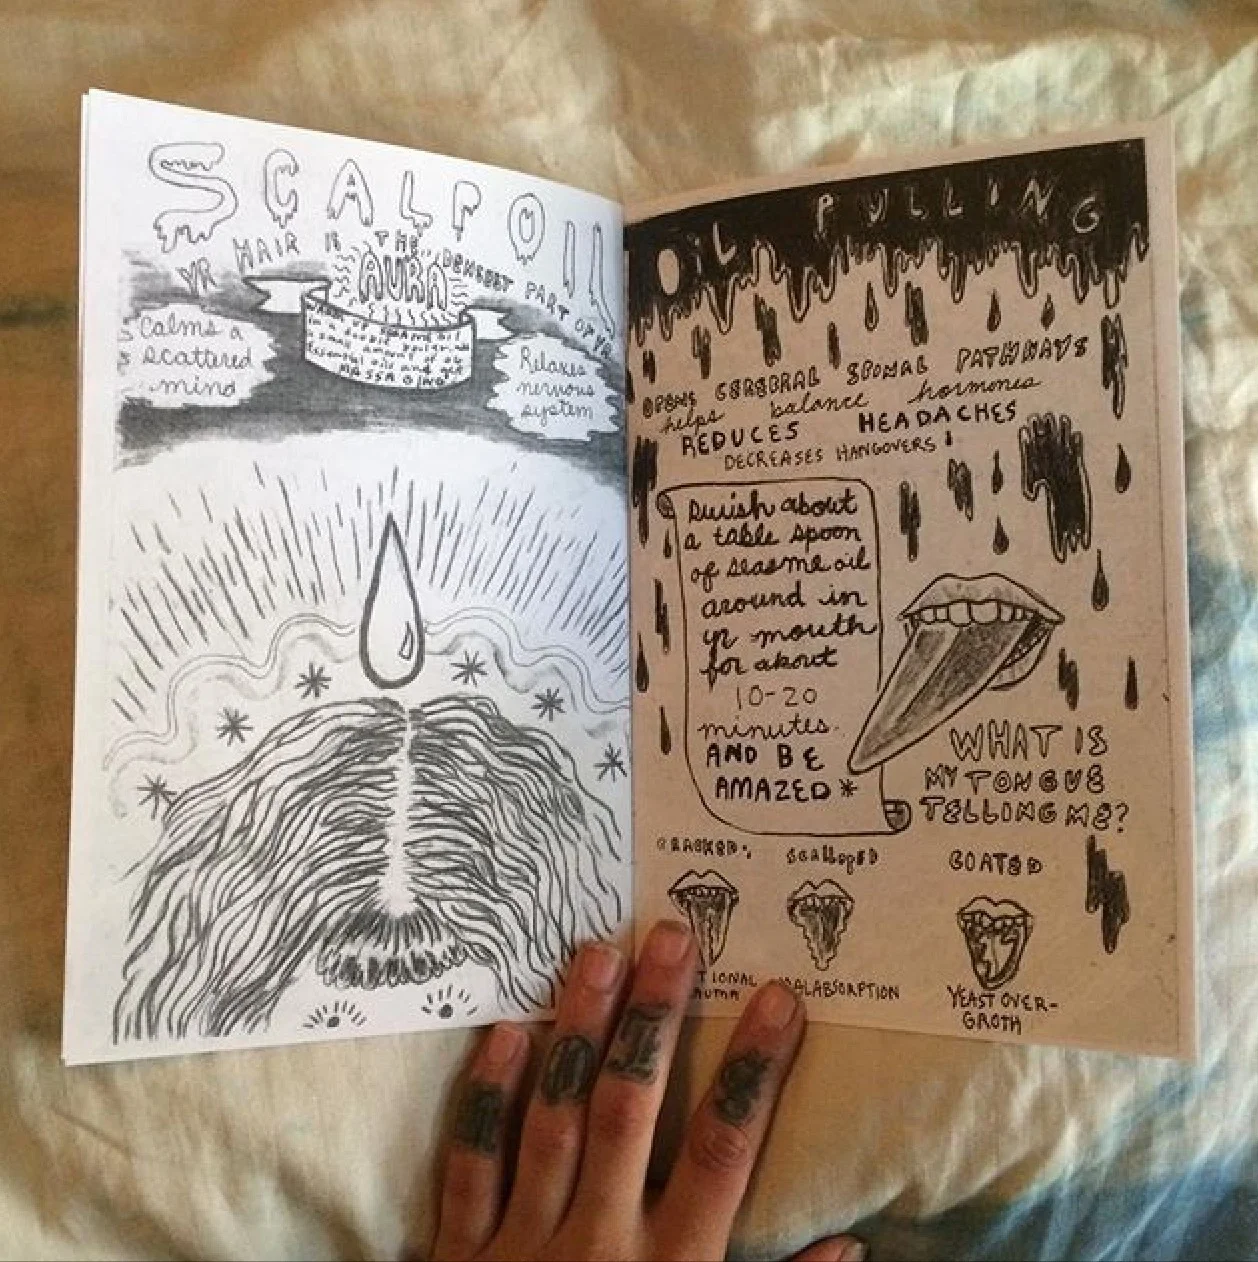 SCALP OIL
YR HAIR IS THE DENSEST PART OF YR
AURA
Calms a
scattered
mind
WARM UP
oil
in a double boiler
small amount of
essential oils and get
MASSAGING
Relaxes
nervous
system
OIL PULLING
OPENS CEREBRAL SPINAL PATHWAYS
helps balance hormones
REDUCES HEADACHES
DECREASES HANGOVERS!
Swish about
a table spoon
of seasme oil
around in
yr mouth
for about
10-20
minutes.
AND BE
AMAZED*
WHAT IS
MY TONGUE
TELLING ME?
CRACKED:
Scalloped
COATED
TIONAL
AUMA
MALABSORPTION
YEAST OVER-
GROTH